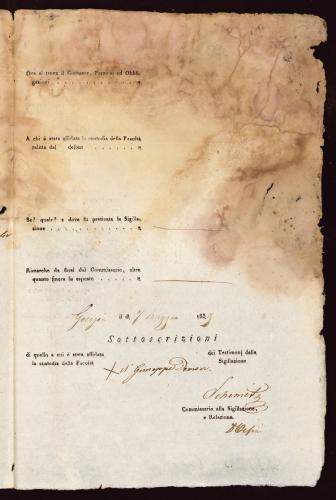 Ove si trova il Contante, Preziosi ed Obbli-
gazioni . . . . . . . . . . . .
A chi è stata affidata la custodia della Facoltà
relitta dal defont . . . . . . . . .
Se? quale? e dove fu praticata la Sigilla-
zione . . . . . . . . . . . . .
Rimarche da farsi dal Commissario, oltre
quanto finora fu esposto . . . . . . .
il dì 7 Maggio 183
Sottoscrizioni
di quello a cui è stata affidata
la custodia della Facoltà
dei Testimonj della
Sigillazione
+ Giuseppe
Commissario alla Sigillazione,
e Relazione.